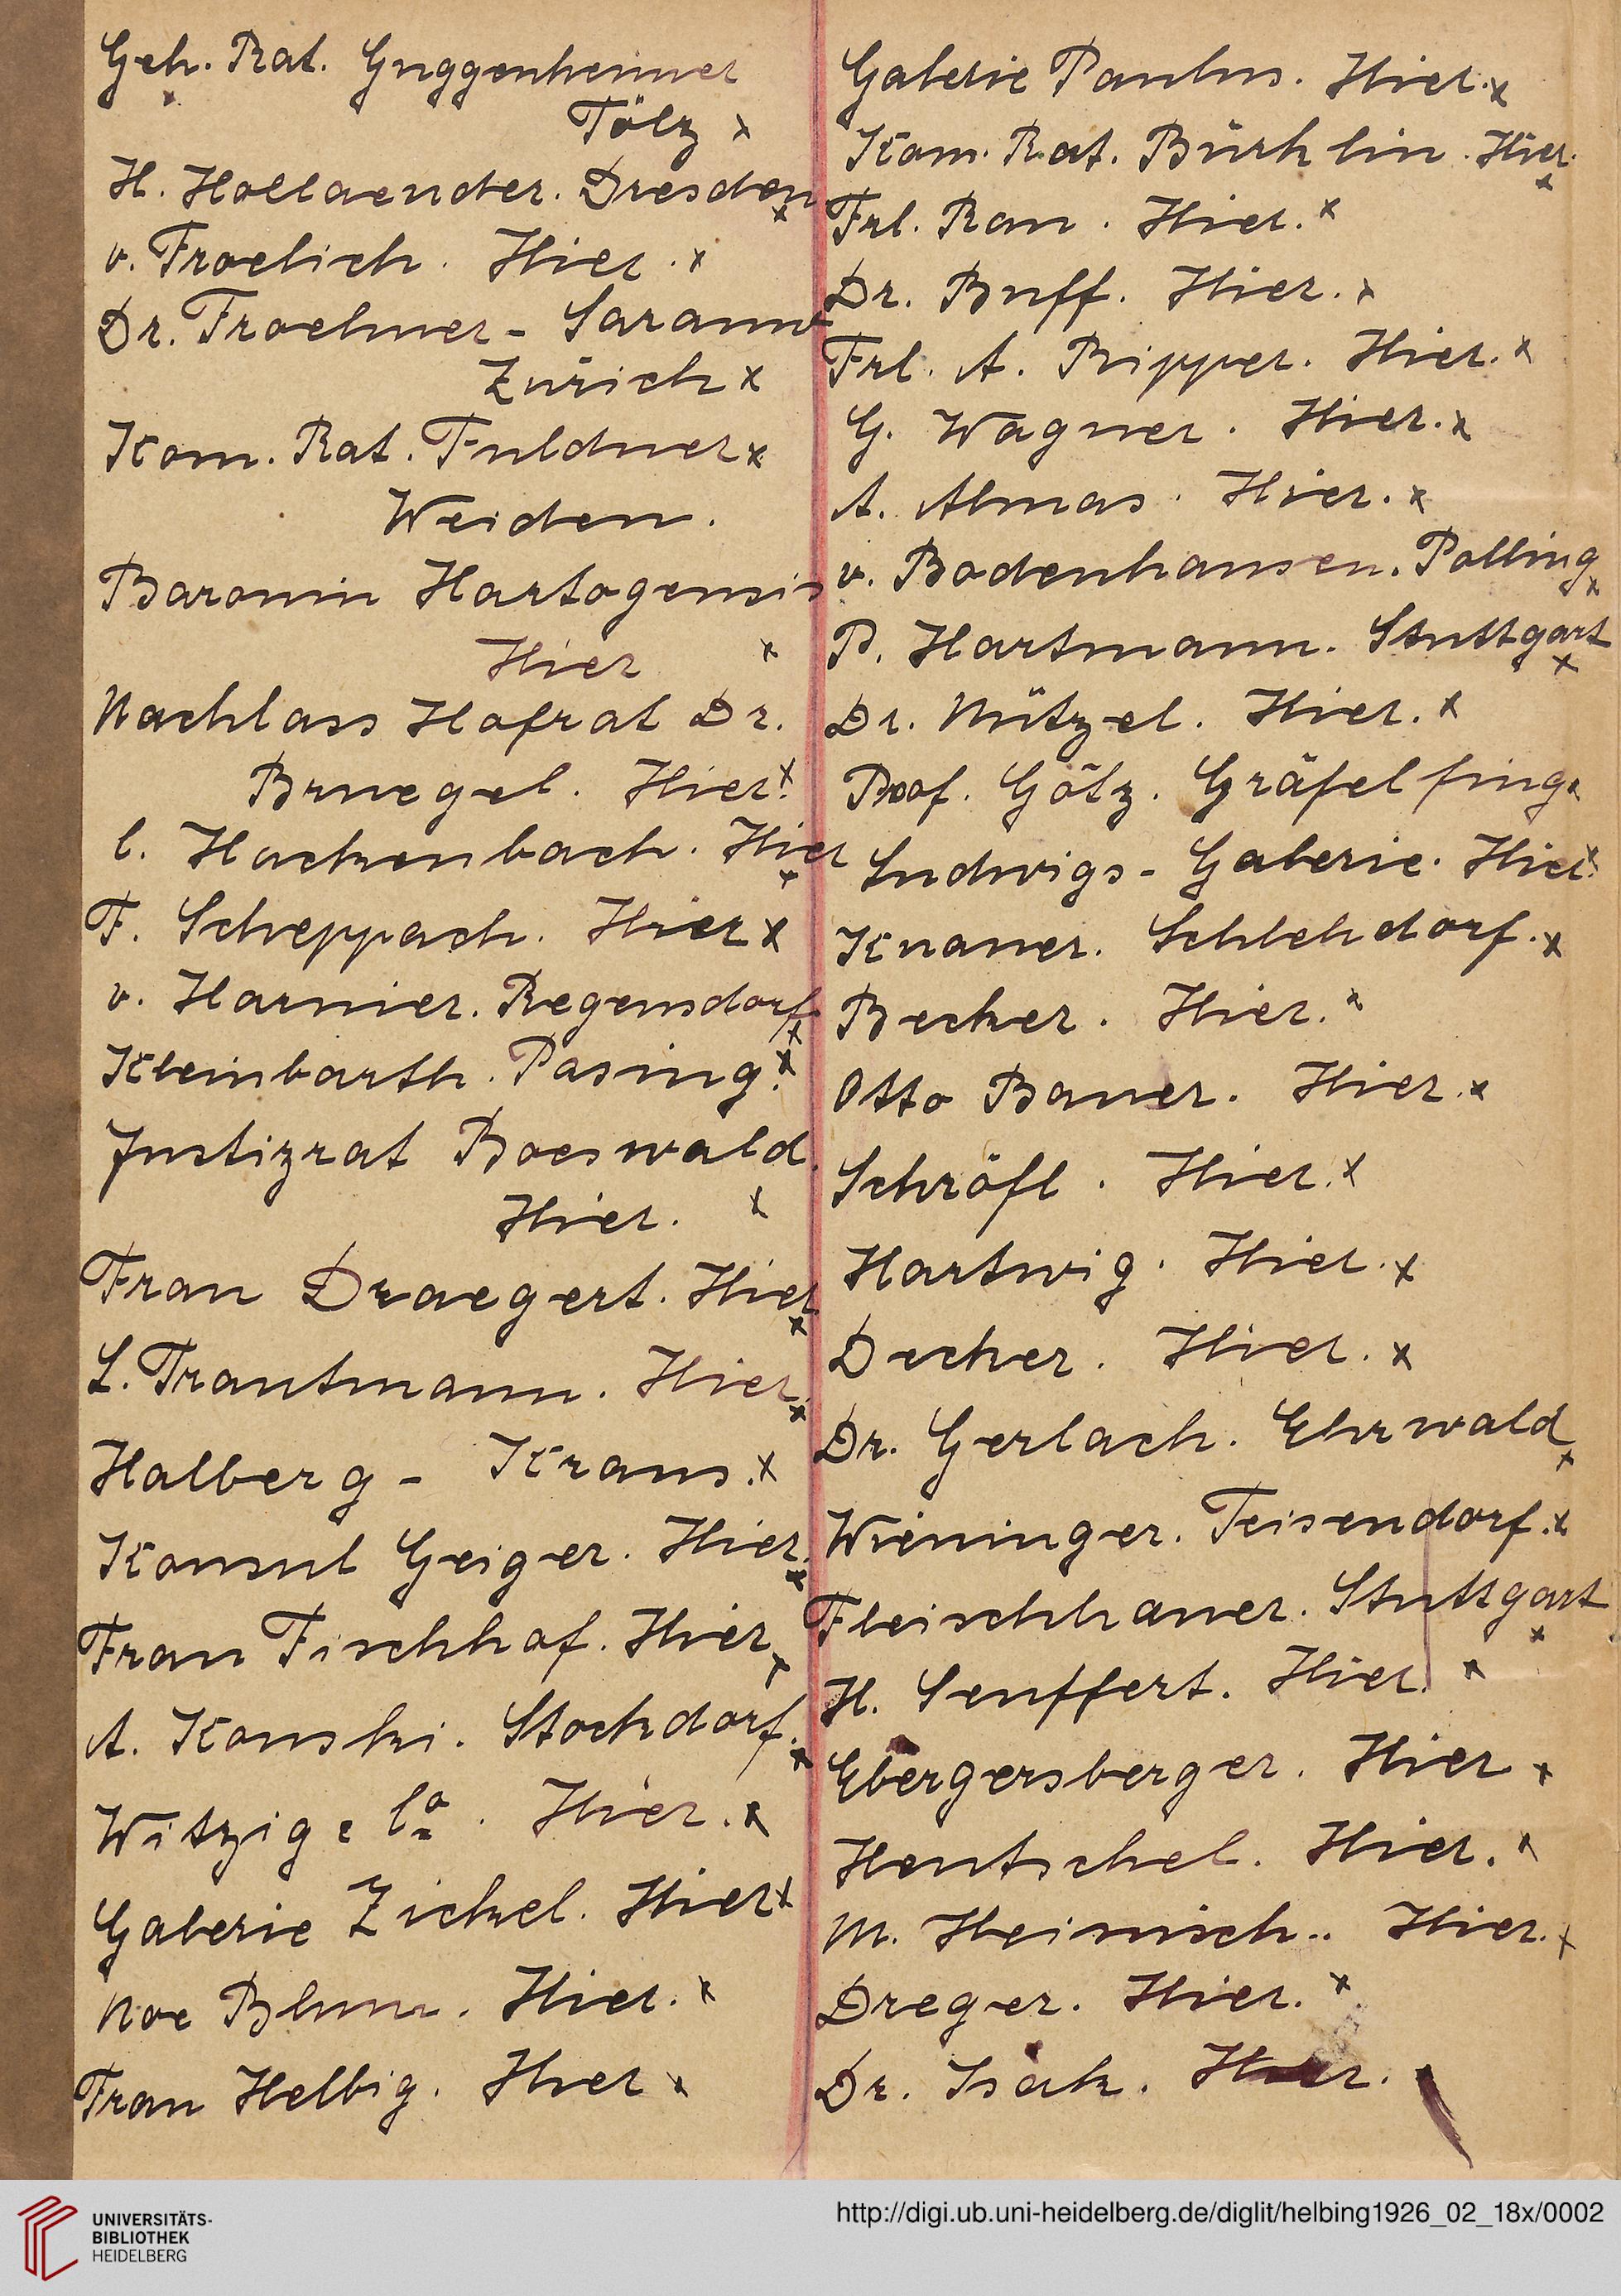 Geh. Rat. Guggenheimer
Tölz x
H. Hollaender. Dresden x
v. Froelich. Hier. x
Dr. Froelmer-
Zürich x
Kom. Rat. Fuldner x
Weiden.
Baronin Hartogensis
Hier x
Nachlass Hofrat Dr.
Bruegel. Hier. x
C. Hackenbach. Hier x
F. Scheppach. Hier x
v. Harnier. Regensdorf x
Kleinbarth. Pasing. x
Justizrat Boeswald.
Hier. x
Frau Draegert. Hier x
L. Trautmann. Hier. x
Halberg - Kraus. x
Konsul Geiger. Hier. x
Frau Fischhof. Hier x
A. Konski. Stockdorf. x
Witzig & Co. Hier. x
Galerie Zickel. Hier x
Noe Blum. Hier. x
Frau Helbig. Hier x
Galerie Paulus. Hier. x
Kom. Rat. Bürklin. Hier. x
Frl. Rau. Hier. x
Dr. Buff. Hier. x
Frl. A. Ripper. Hier. x
G. Wagner. Hier. x
A. Almas. Hier. x
v. Bodenhausen. Polling x
P. Hartmann. Stuttgart x
Dr. Mützel. Hier. x
Prof. Götz. Gräfelfing x
Ludwigs-Galerie. Hier. x
Knauer. Schlehdorf. x
Becker. Hier. x
Otto Bauer. Hier. x
Schröfl. Hier. x
Hartwig. Hier. x
Decker. Hier. x
Dr. Gerlach. Ehrwald x
Wieninger. Teisendorf. x
Fleischhauer. Stuttgart x
H. Seuffert. Hier. x
Ebergersberger. Hier x
Hentschel. Hier. x
M. Heinisch.. Hier. x
Dreger. Hier. x
Dr. Isak. Hier.
UNIVERSITÄTS-
BIBLIOTHEK
HEIDELBERG
http://digi.ub.uni-heidelberg.de/diglit/helbing1926_02_18x/0002